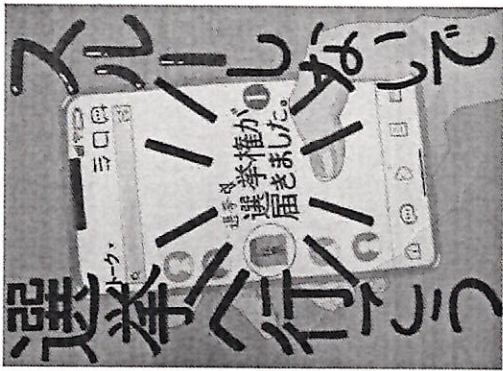 スルーしないで
トーク
選挙権が
届きました。
1
選挙へ行こう